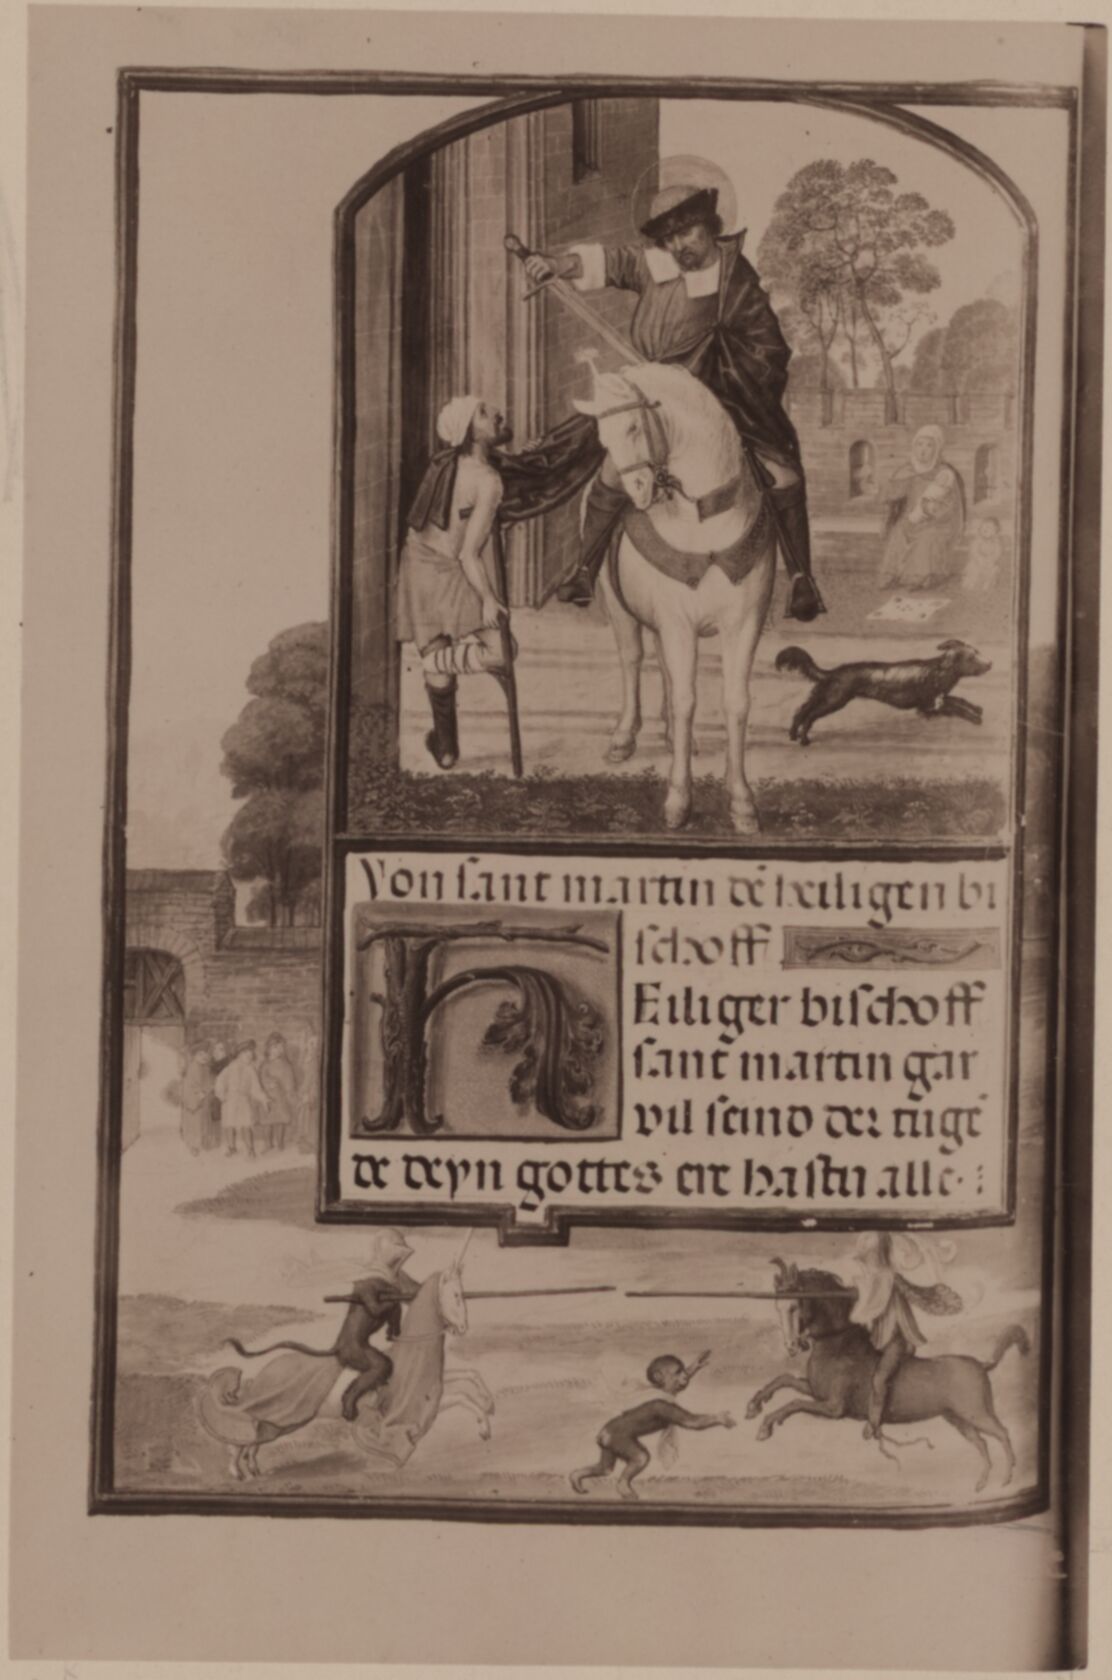 Von sant martin dē heiligen bi
schoff
HEiliger bischoff
sant martin gar
vil seind der tugē
de deyn gottes ere hastu alle·: